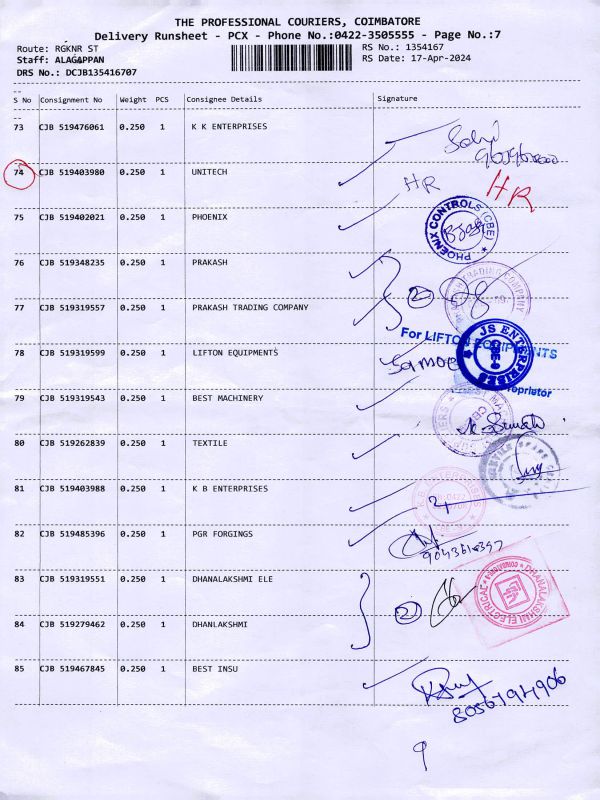 THE PROFESSIONAL COURIERS, COIMBATORE
Delivery Runsheet - PCX - Phone No.:0422-3505555 - Page No.:7
Route: RGKNR ST RS No.: 1354167
Staff: ALAGAPPAN RS Date: 17-Apr-2024
DRS No.: DCJB135416707
--
S No Consignment No Weight PCS Consignee Details Signature
--
73 CJB 519476061 0.250 1 K K ENTERPRISES
74 CJB 519403980 0.250 1 UNITECH HR HR
75 CJB 519402021 0.250 1 PHOENIX
PHOENIX CONTROLS (CBE)
76 CJB 519348235 0.250 1 PRAKASH
2
77 CJB 519319557 0.250 1 PRAKASH TRADING COMPANY
TRADING COMPANY
78 CJB 519319599 0.250 1 LIFTON EQUIPMENTS
For LIFTON EQUIPMENTS
JS ENTERPRISES
CBE-6
Proprietor
79 CJB 519319543 0.250 1 BEST MACHINERY
80 CJB 519262839 0.250 1 TEXTILE
81 CJB 519403988 0.250 1 K B ENTERPRISES
82 CJB 519485396 0.250 1 PGR FORGINGS
83 CJB 519319551 0.250 1 DHANALAKSHMI ELE
2
DHANALAKSHMI ELECTRICAL
84 CJB 519279462 0.250 1 DHANLAKSHMI
85 CJB 519467845 0.250 1 BEST INSU
9